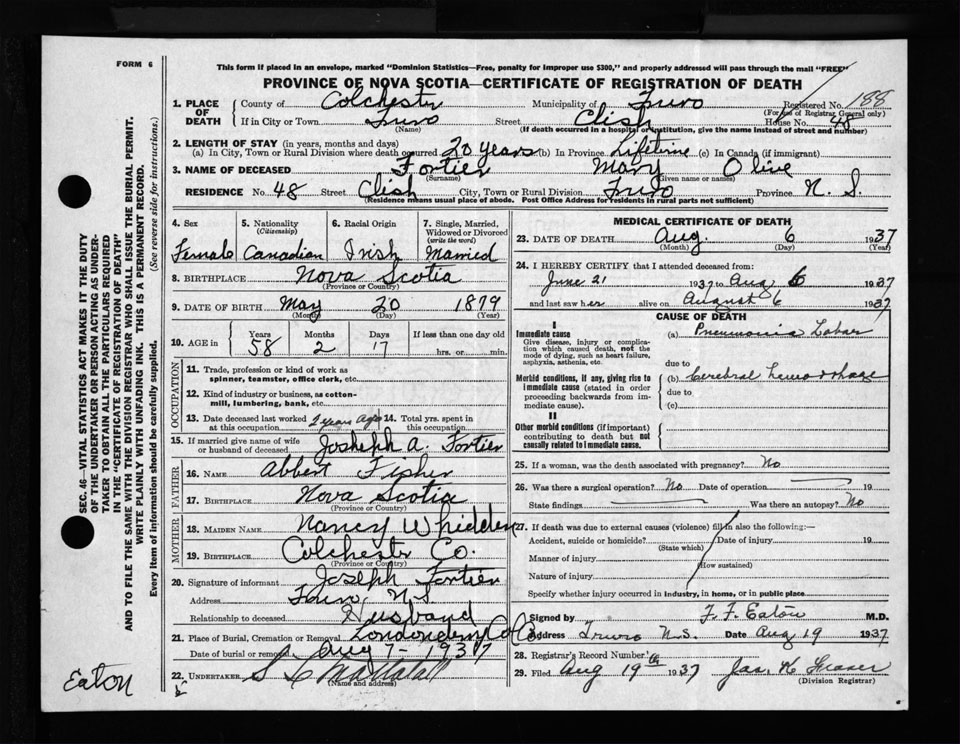 FORM 6
This form if placed in an envelope, marked "Dominion Statistics—Free, penalty for improper use $300," and properly addressed will pass through the mail "FREE"
PROVINCE OF NOVA SCOTIA—CERTIFICATE OF REGISTRATION OF DEATH
1. PLACE OF DEATH County of Colchester Municipality of Truro Registered No. 188
(For use of Registrar General only)
If in City or Town Truro Street Clish House No. 48
(Name) (If death occurred in a hospital or institution, give the name instead of street and number)
2. LENGTH OF STAY (in years, months and days)
(a) In City, Town or Rural Division where death occurred 20 years (b) In Province Lifetime (c) In Canada (if immigrant)
3. NAME OF DECEASED Fortier Mary Olive
(Surname) (Given name or names)
RESIDENCE No. 48 Street Clish City, Town or Rural Division Truro Province N. S.
(Residence means usual place of abode. Post Office Address for residents in rural parts not sufficient)
4. Sex 5. Nationality (Citizenship) 6. Racial Origin 7. Single, Married, Widowed or Divorced (write the word)
Female Canadian Irish Married
8. BIRTHPLACE Nova Scotia
(Province or Country)
9. DATE OF BIRTH May 20 1879
(Month) (Day) (Year)
10. AGE in Years Months Days If less than one day old
58 2 17 hrs. or min.
OCCUPATION
11. Trade, profession or kind of work as spinner, teamster, office clerk, etc.
12. Kind of industry or business, as cotton-mill, lumbering, bank, etc.
13. Date deceased last worked at this occupation 2 years ago 14. Total yrs. spent in this occupation
15. If married give name of wife or husband of deceased Josheph A. Fortier
FATHER
16. NAME Fisher
17. BIRTHPLACE Nova Scotia
(Province or Country)
MOTHER
18. MAIDEN NAME Nancy Whidden
19. BIRTHPLACE Colchester Co.
(Province or Country)
20. Signature of informant Joseph Fortier
Address Truro, N.S
Relationship to deceased Husband
21. Place of Burial, Cremation or Removal Londonderry
Date of burial or removal Aug 7- 1937
22. UNDERTAKER
(Name and address)
MEDICAL CERTIFICATE OF DEATH
23. DATE OF DEATH Aug. 6 1937
(Month) (Day)
24. I HEREBY CERTIFY that I attended deceased from:
June 21 1937 to Aug 6 1937
and last saw her alive on August 6 1937
CAUSE OF DEATH
I
Immediate cause
Give disease, injury or complication which caused death, not the mode of dying, such as heart failure, asphyxia, asthenia, etc.
(a) Pneumonia Lobar
due to
Morbid conditions, if any, giving rise to immediate cause (stated in order proceeding backwards from immediate cause).
(b) Cerebral Hemorrhage
due to
(c)
II
Other morbid conditions (if important) contributing to death but not causally related to immediate cause.
25. If a woman, was the death associated with pregnancy? No
26. Was there a surgical operation? No Date of operation 19
State findings Was there an autopsy? No
27. If death was due to external causes (violence) fill in also the following:—
Accident, suicide or homicide? Date of injury 19
(State which)
Manner of injury
(How sustained)
Nature of injury
Specify whether injury occurred in industry, in home, or in public place
Signed by F. F. Eaton M.D.
Address Truro N.S. Date Aug 19 1937
28. Registrar's Record Number
29. Filed Aug 19th 1937 Jas. H Fraser
(Division Registrar)
SEC. 46—VITAL STATISTICS ACT MAKES IT THE DUTY
OF THE UNDERTAKER OR PERSON ACTING AS UNDERTAKER TO OBTAIN ALL THE PARTICULARS REQUIRED
IN THE "CERTIFICATE OF REGISTRATION OF DEATH"
AND TO FILE THE SAME WITH THE DIVISION REGISTRAR WHO SHALL ISSUE THE BURIAL PERMIT.
WRITE PLAINLY WITH UNFADING INK. THIS IS A PERMANENT RECORD.
Every item of information should be carefully supplied. (See reverse side for instructions.)
Eaton